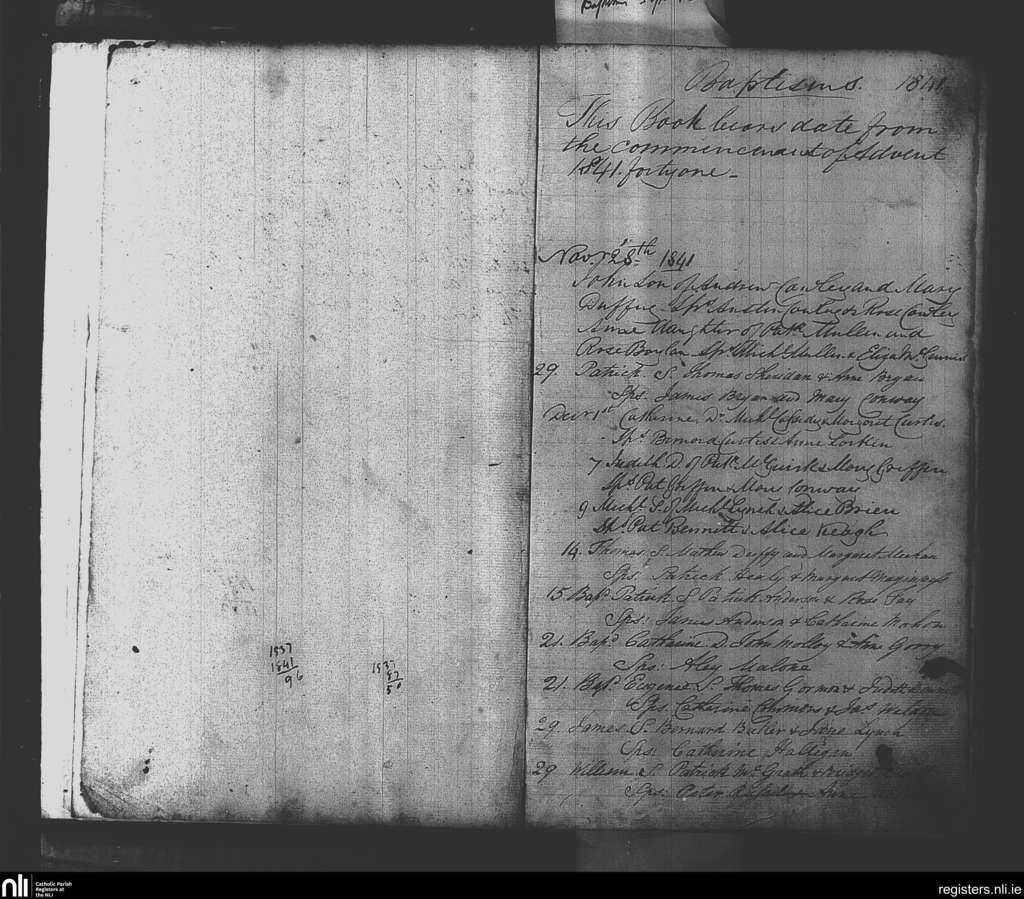 Baptisms. 1841
This Book bears date from
the commencement of Advent
1841. forty one -
Novr 28th 1841
John Son of Andrew Cawley and Mary
Duffy Sprs Austin & Rose Cawley
Anne Daughter of Patk Mullen and
Rose Boylan Sprs Michl Mullen & Eliza
29. Patrick S. Thomas Sheridan & Anne Bryan
Sps. James Bryan and Mary Conway
Decr 1st Catherine D. Michl & Margaret Curtis.
Sps Bernard Curtis & Anne Lorkin
7 Judith D. of Patk McGuirk & Mary Griffin
Sps Pat Griffin & Mary Conway
9 Michl S. of Michl Lynch & Alice Brien
Sps. Pat Bennett & Alice Keagh
14. Thomas S. Mathew Duffy and Margaret Meehan
Sps. Patrick Healy & Margaret
15 Bapd Patrick S Patrick Anderson & Rose Fay
Sps: James Anderson & Catharine
21. Bapd Catharine D. John Molloy & Ann Gorry
Sps: Aley Malone
21. Bapd. Eugenea S. Thomas Gorman & Judith
Sps. Catharine Commons & Jas
29. James S. Bernard Butler & Jane Lynch
Sps: Catherine Halligan
29 William S. Patrick McGrath & Bridget
Sps: Peter & Anne
1537
1841
96
1537
87
50
nli
Catholic Parish
Registers at
the NLI
registers.nli.ie